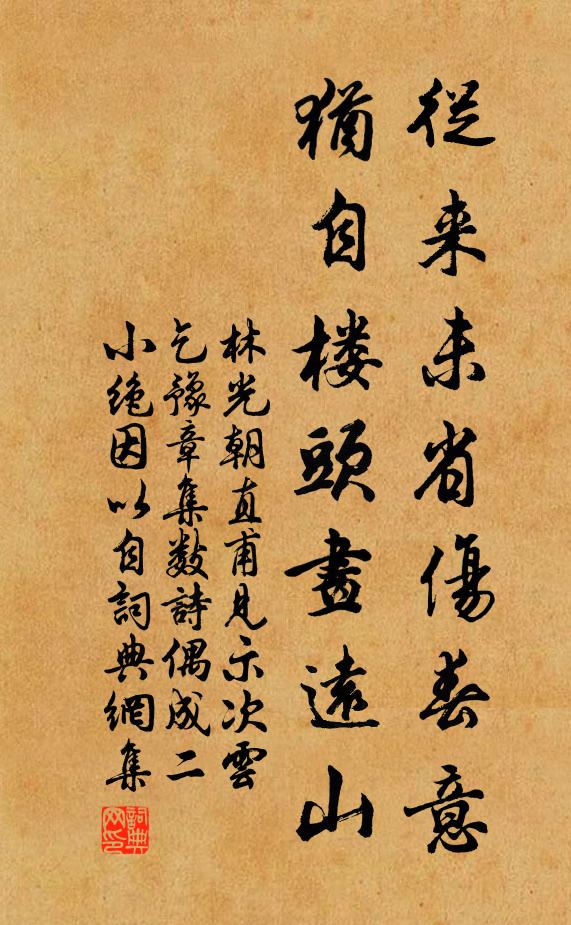 從来未省傷春意
猶自楼頭畫遠山
林光朝直甫見示次雲
乞豫章集数詩偶成二
小绝因以自詞典網集
詞典网印